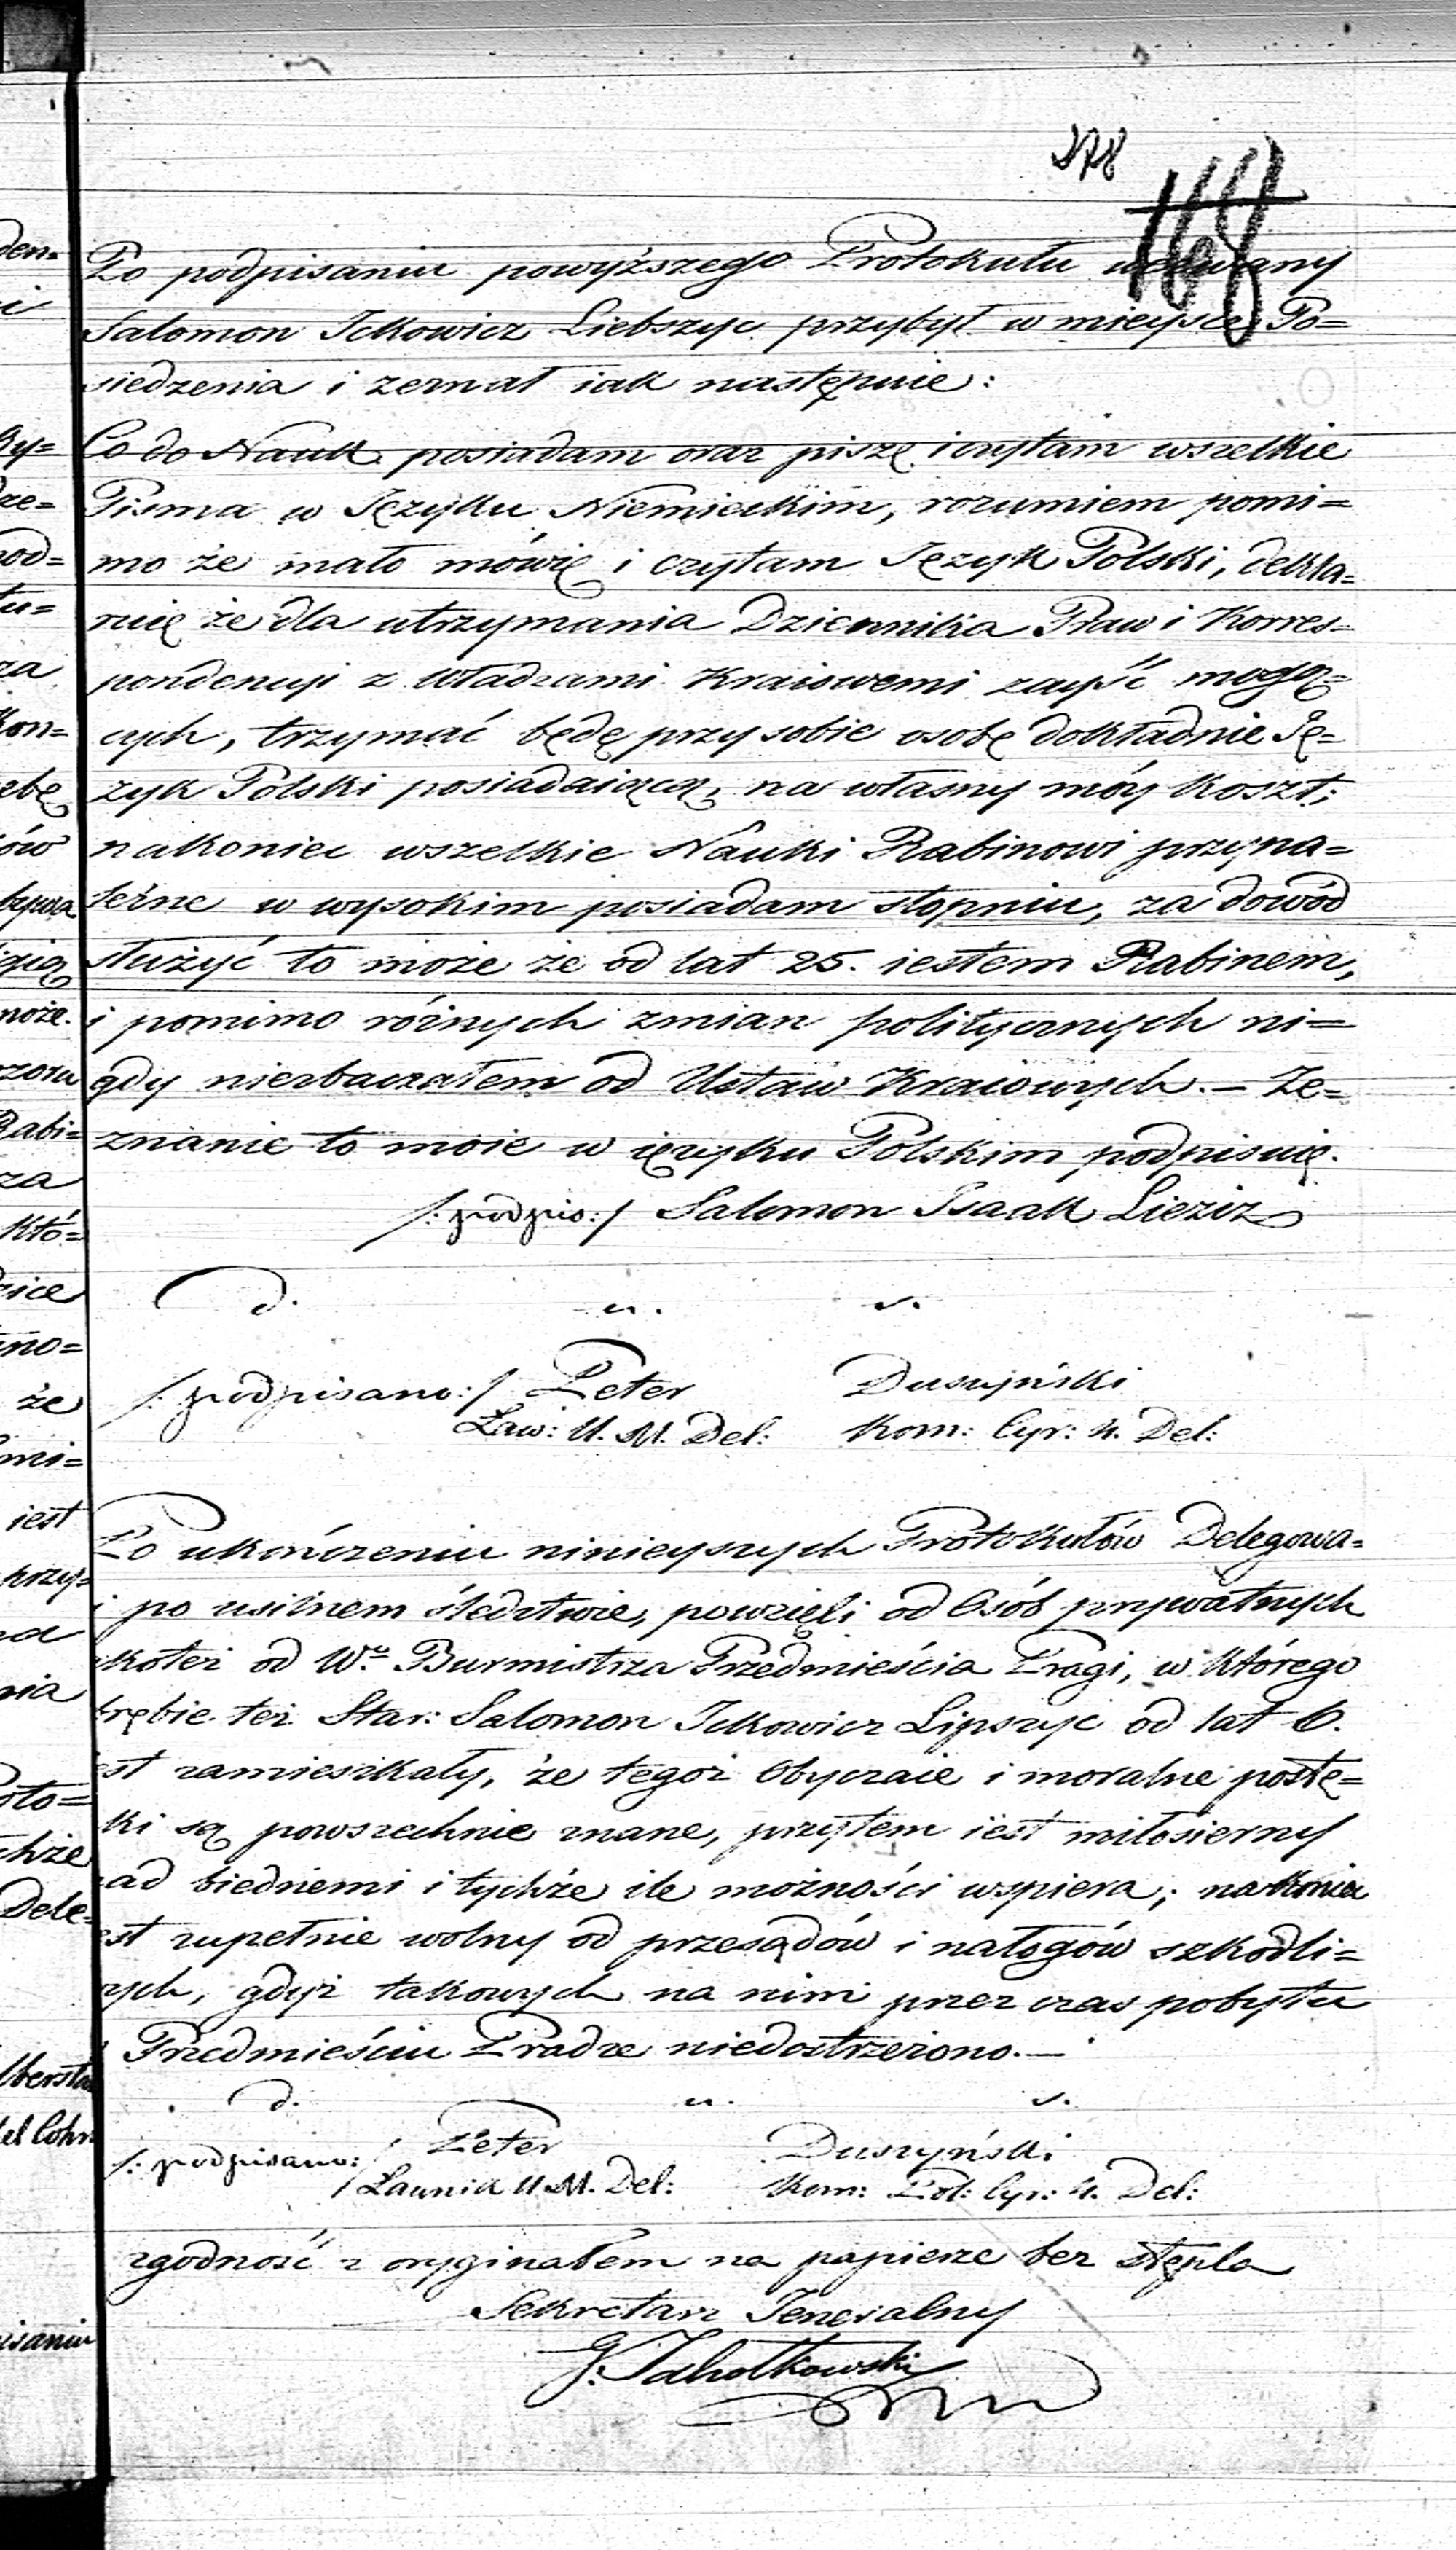 378
Po podpisaniu powyższego Protokułu wezwany
Salomon Ickowicz Liebszyc przybył w mieysce Po=
siedzenia i zeznał iak następuie:
Co do Nauk posiadam oraz piszę i czytam wszelkie
Pisma w Języku Niemieckim, rozumiem pomi=
mo że mało mówię i czytam Język Polski, dekla=
ruię że dla utrzymania Dziennika Praw i Korres=
pondencyi z Władzami Kraiowemi zayść mogą=
cych, trzymać będę przy sobie osobę dokładnie Ję=
zyk Polski posiadaiącą, na własny móy koszt;
nakoniec wszelkie Nauki Rabinowi przyna=
leżne w wysokim posiadam stopniu, za dowód
służyć to może że od lat 25. iestem Rabinem,
i pomimo różnych zmian politycznych ni=
gdy niezbaczałem od Ustaw Kraiowych. — Ze=
znanie to moie w ięzyku Polskim podpisuię.
/: podpis :/ Salomon Isaak
d. u. s.
/: podpisano :/ Peter Duszyński
Ław: U. M. Del: Kom: Cyr: 4. Del:
Po ukończeniu ninieyszych Protokułów Delegowa=
i po usilnem śledztwie, powzięli od Osób prywatnych
koteż od Wo Burmistrza Przedmieścia Pragi, w którego
rębie też Star: Salomon Ickowicz Lipszyc od lat 6.
st zamieszkały, że tegoż Obyczaie i moralne postę=
ki są powszechnie znane, przytem iest miłosierny
ad biednemi i tychże ile możności wspiera; nakoniec
est zupełnie wolny od przesądów i nałogów szkodli=
ych, gdyż takowych na nim przez czas pobytu
Przedmieściu Pradze niedostrzeżono. —
d. u. s.
/: podpisano: / Peter Duszyński
Ławnik U. M. Del: Kom: Pol: Cyr: 4. Del:
zgodność z oryginałem na papierze bez stępla
Sekretarz Jeneralny